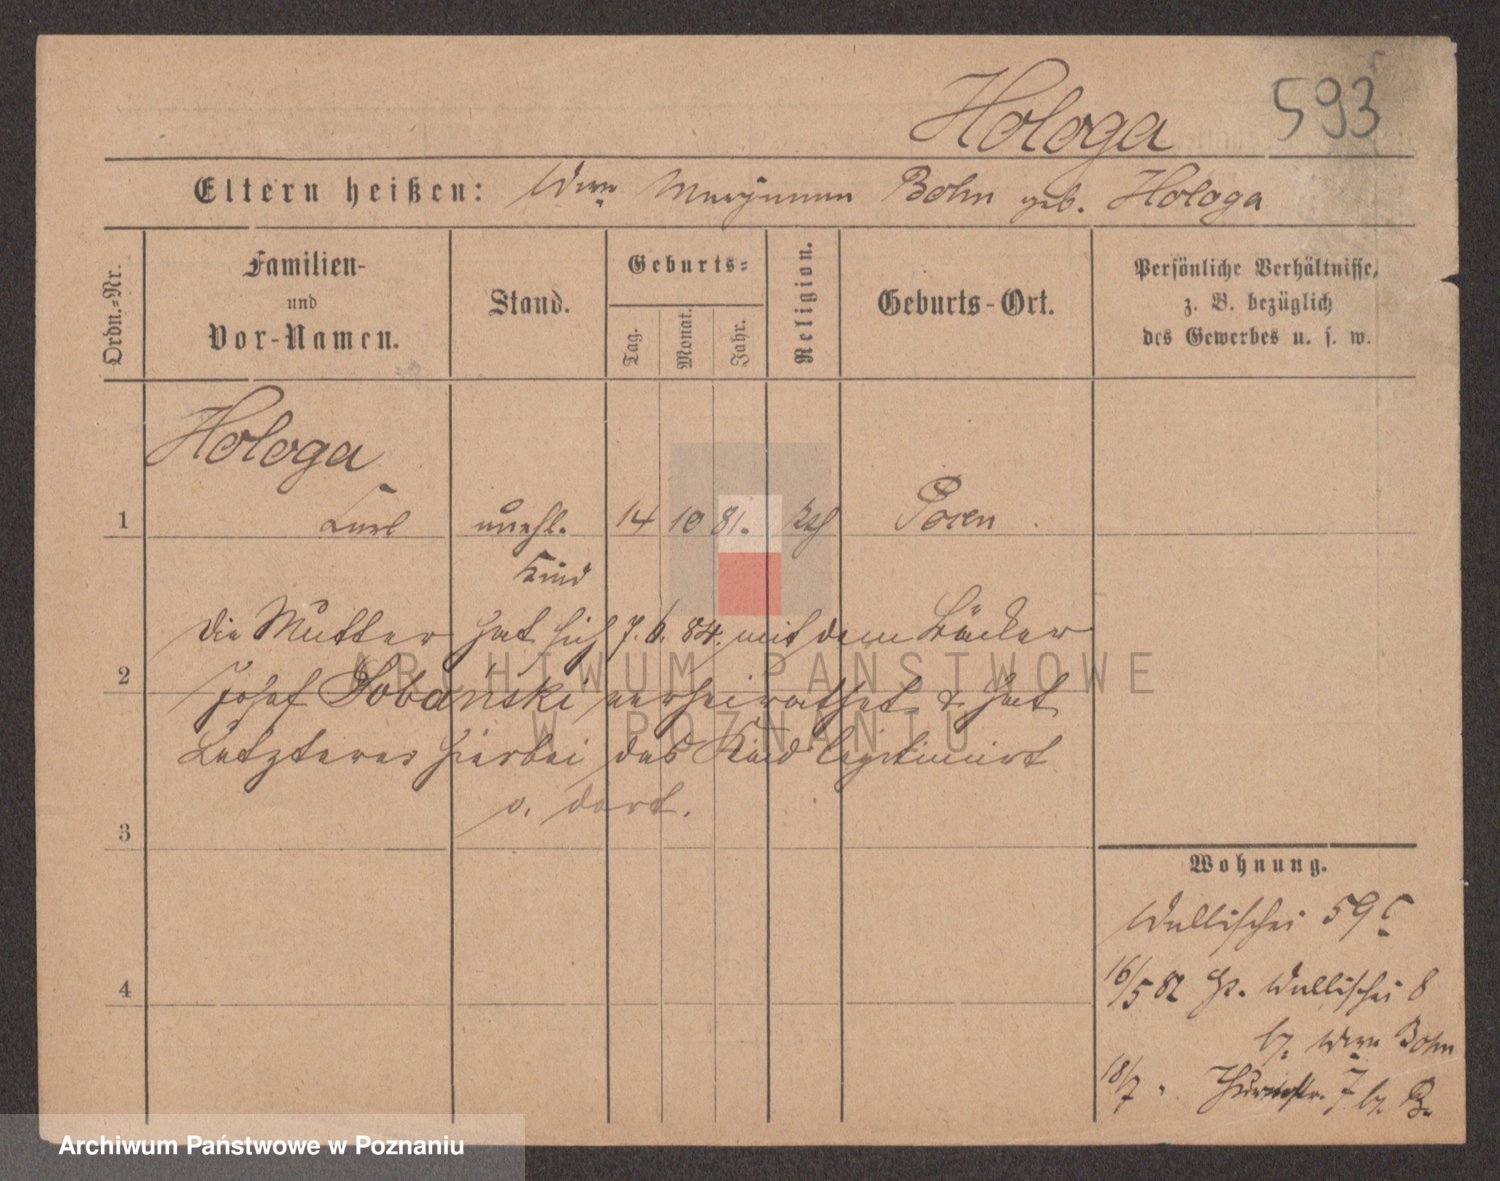 Hologa 593
Eltern heißen: Wwe Marÿanna Bohn geb. Hologa
Ordn.-Nr.
Familien-
und
Vor-Namen.
Stand.
Geburts-
Tag.
Monat.
Jahr.
Religion.
Geburts-Ort.
Persönliche Verhältnisse,
z. B. bezüglich
des Gewerbes u. s. w.
Hologa
1 Carl unehl. 14 10 81. kth Posen
Kind
Die Mutter hat sich 7. 6. 84. mit dem Bäcker
2 Josef Sobański verheirathet & hat
Letzterer hierbei das Kind legitimirt
s. dort.
3
4
Wohnung.
Wallischei 59
16/5 82 Wallischei 8
bz. Wwe Bohn
18/7 " Thurmstr. 7 bz. B.
ARCHIWUM PAŃSTWOWE
W POZNANIU
Archiwum Państwowe w Poznaniu